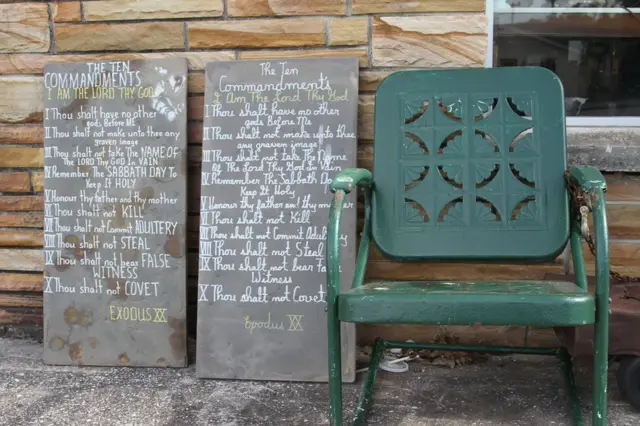 THE TEN
COMMANDMENTS
I AM THE LORD THY GOD
I Thou shalt have no other
gods Before Me
II Thou shalt not make unto thee any
graven image
III Thou shalt not take the NAME OF
THE LORD THY GOD in VAIN
IV Remember The SABBATH DAY To
Keep It HOLY
V Honour thy Father and thy mother
VI Thou shalt not KILL
VII Thou shalt not Commit ADULTERY
VIII Thou shalt not STEAL
IX Thou shalt not bear FALSE
WITNESS
X Thou shalt not COVET
EXODUS XX
The Ten
Commandments
I Am The Lord Thy God
I Thou shalt have no other
Gods Before Me
II Thou shalt not make unto thee
any graven image
III Thou shalt not Take The Name
Of The Lord Thy God in Vain
IV Remember The Sabbath Day
Keep It Holy
V Honour thy father and thy mother
VI Thou shalt not Kill
VII Thou shalt not Commit Adultery
VIII Thou shalt not Steal
IX Thou shalt not bear False
Witness
X Thou shalt not Covet
Exodus XX